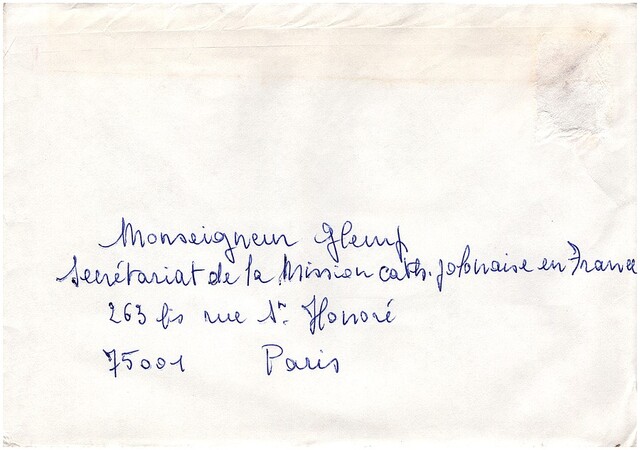 Monseigneur Glemp
Secrétariat de la Mission cath. polonaise en France
263 bis rue St. Honoré
75001 Paris